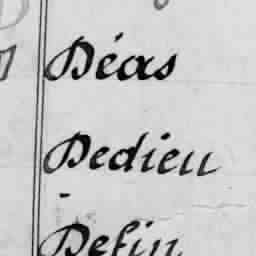 Déas
Dedieu
Defin